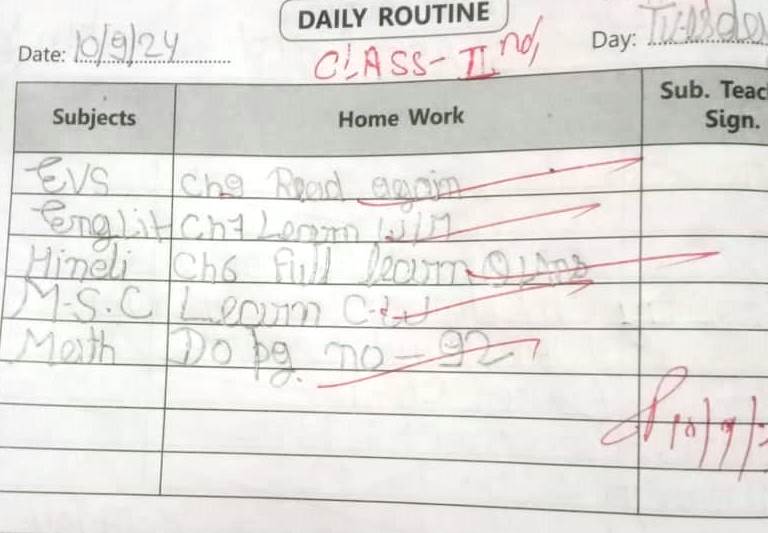 DAILY ROUTINE
Date: 10/9/24
CLASS-IInd
Day: Tuesda
Subjects Home Work Sub. Teac
Sign.
EVS Ch9 Read again
Eng Lit Ch7 Learn W/M
Hindi Ch6 full learn Q/Ans
M.S.C Learn C.W
Math Do pg. no-92